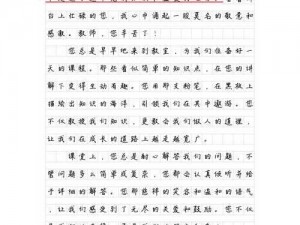 台上忙碌的您，我心中涌起一股莫名的敬意和
感激。教师，您辛苦了！
您总是早早地来到教室，为我们准备好一
天的课程。那些看似简单的知识点，在您的讲
解下变得生动而有趣。您用那支粉笔，在黑板上
描绘出知识的海洋，引领我们在其中遨游。您
不仅教授我们知识，更教会我们做人的道理，
让我们在成长的道路上越走越宽广。
课堂上，您总是耐心解答我们的问题，不
管问题多么简单或复杂，您都会认真倾听并给
予详细的解答。您那慈祥的笑容和温和的语气，
让我们感受到了无尽的关爱和鼓励。您不仅是